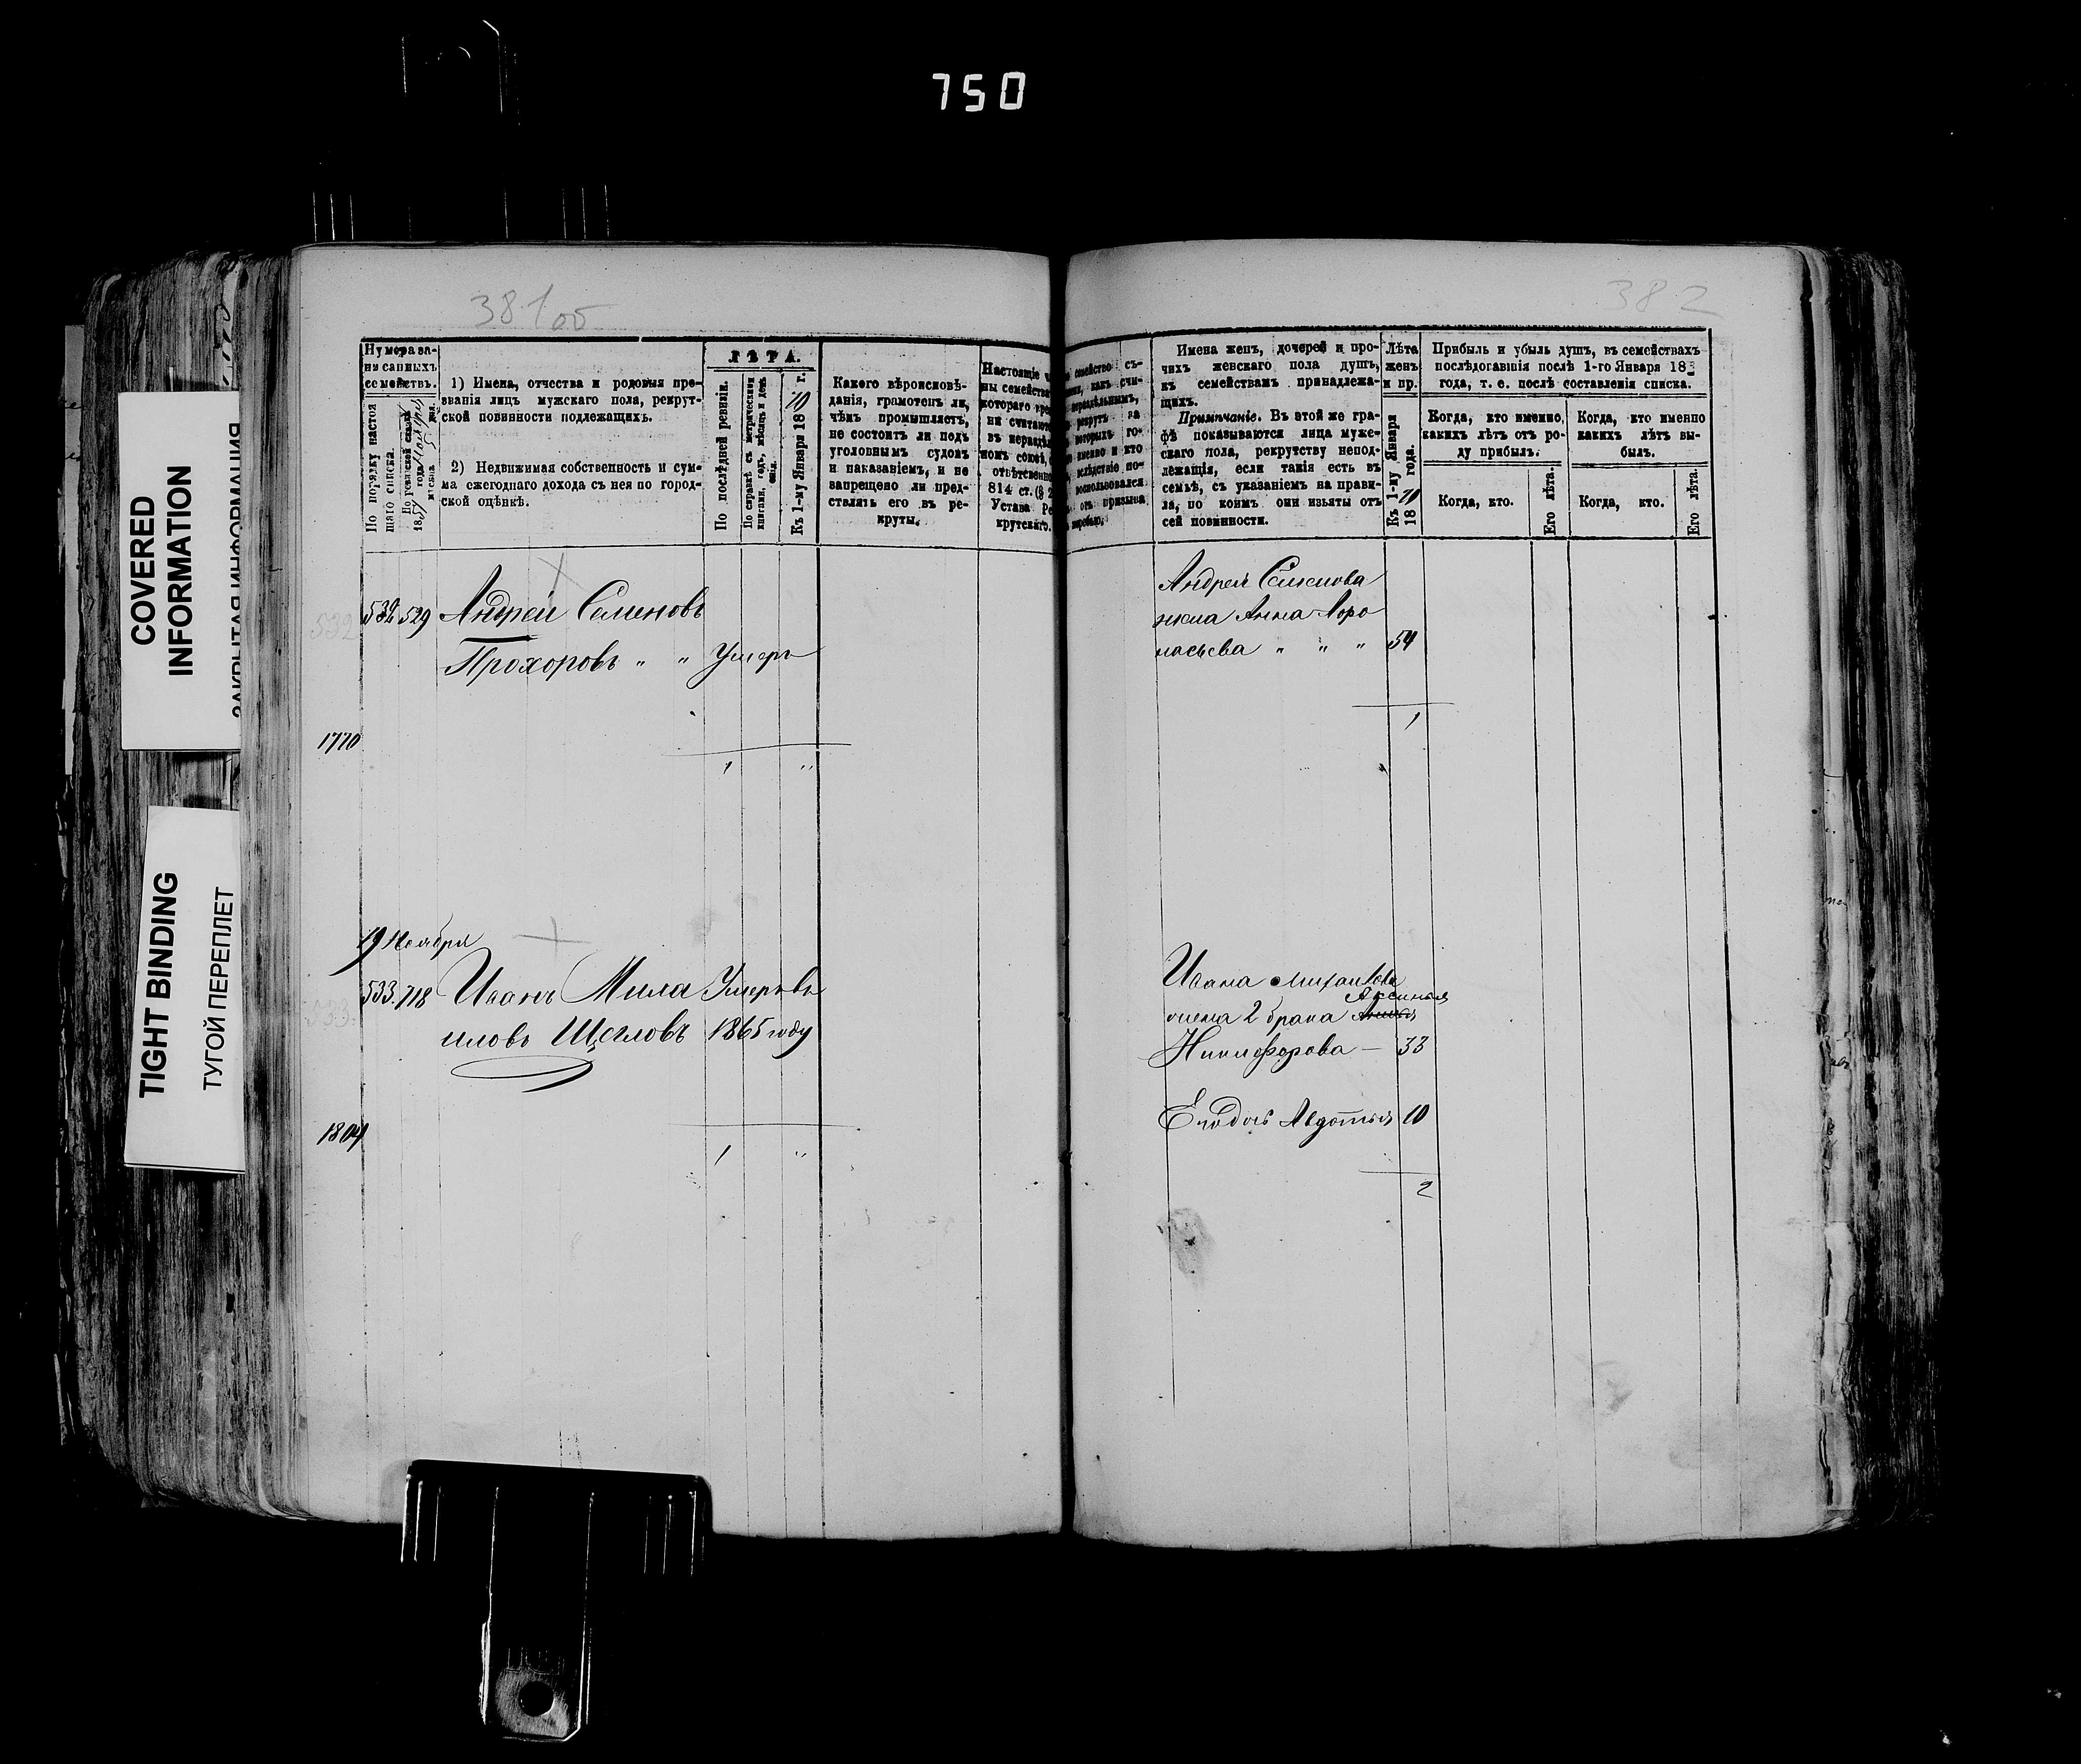 750
COVERED
INFORMATION
ЗАКРЫТАЯ ИНФОРМАЦИЯ
TIGHT BINDING
ТУГОЙ ПЕРЕПЛЕТ
381об
Нумера за-
писанныхъ
семействъ.
По порядку настоя
щаго списка.
1) Имена, отчества и родовыя про-
званія лицъ мужскаго пола, рекрут-
ской повинности подлежащихъ.
2) Недвижимая собственность и сум-
ма ежегоднаго дохода съ нея по город-
ской оцѣнкѣ.
ЛѢТА.
По послѣдней ревизіи.
По справкѣ съ метрическими
книгами, годъ, мѣсяцъ и день
Къ 1-му Января 1870 г.
Какого вѣроисповѣ-
данія, грамотенъ ли,
чѣмъ промышляетъ,
не состоитъ ли подъ
уголовнымъ судомъ
и наказаніемъ, и не
запрещено ли пред-
ставлять его въ ре-
круты.
Настоящіе
ны семейства
котораго
ни считают
въ нераздѣл
номъ союзѣ,
отвѣтственно
814 ст. (§
Устава Ре
крутскаго.
532 529 Андрей Семеновъ
Прохоровъ " " Умеръ
1770
1 "
19 Ноября
533. 718 Иванъ Михаи Умеръ въ
иловъ Щегловъ 1865 году
1804
1 "
382
семейство съ-
какъ счи-
нераздѣльнымъ,
рекрутъ за
которыхъ го-
именно и кто
вслѣдствіе по-
воспользовался
отъ призыва
жребью.
Имена женъ, дочерей и про-
чихъ женскаго пола душъ,
къ семействамъ принадлежа-
щихъ.
Примѣчаніе. Въ этой же гра-
фѣ показываются лица муже-
скаго пола, рекрутству непод-
лежащія, если такія есть въ
семьѣ, съ указаніемъ на прави-
ла, по коимъ они изъяты отъ
сей повинности.
Лѣта
женъ
и пр.
Къ 1-му Января
1870 года.
Прибыль и убыль душъ, въ семействахъ
послѣдовавшія послѣ 1-го Января 18
года, т. е. послѣ составленія списка.
Когда, кто именно,
какихъ лѣтъ отъ ро-
ду прибылъ.
Когда, кто именно
какихъ лѣтъ вы-
былъ.
Когда, кто.
Его лѣта.
Когда, кто.
Его лѣта.
Андрея Семенова
жена Анна
" " " 54
1
Ивана Михаилова
Аксинья
жена 2 брака
Никифорова — 33
Его дочь Авдотья 10
2